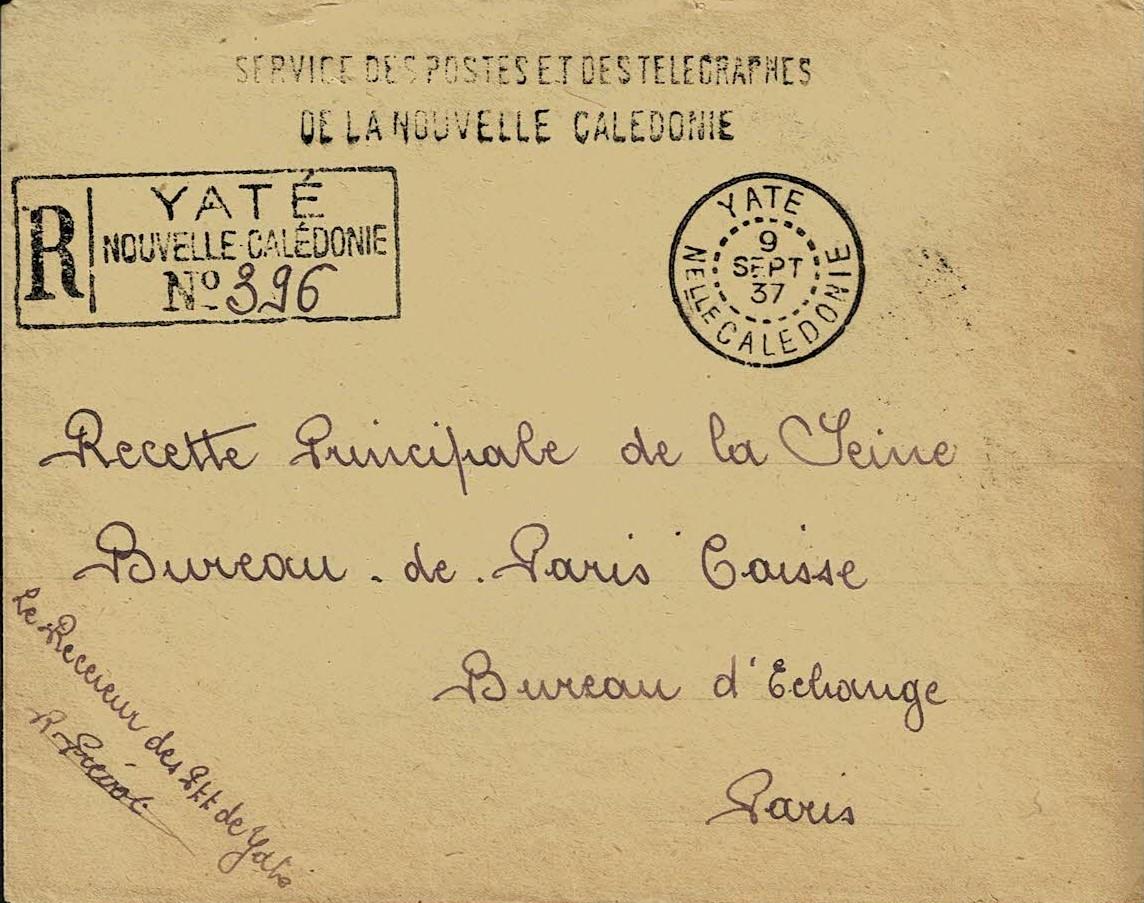 SERVICE DES POSTES ET DES TELEGRAPHES
DE LA NOUVELLE CALEDONIE
R YATÉ
NOUVELLE-CALÉDONIE
Nº 396
YATE
9
SEPT
37
NELLE CALEDONIE
Recette Principale de la Seine
Bureau . de . Paris Caisse
Bureau d'Echange
Paris
Le Receveur des Ptt de Yaté
R. Prévot